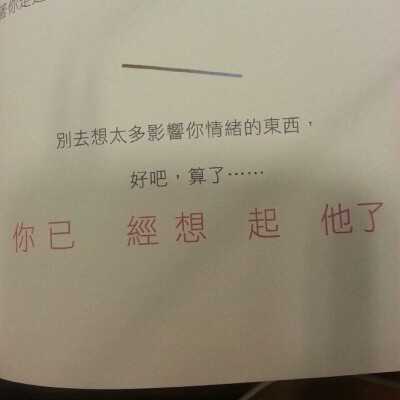 別去想太多影響你情緒的東西，
好吧，算了……
你已 經想 起 他了